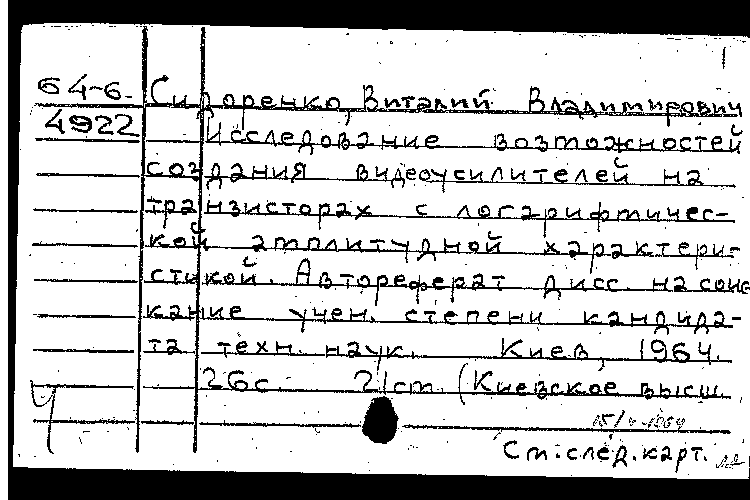 64-6.
4922
Сидоренко, Виталий Владимирович
Исследование возможностей
создания видеоусилителей на
транзисторах с логарифмичес-
кой амплитудной характерис-
тикой. Автореферат дисс. на соис-
кание учен. степени кандида-
та техн. наук. Киев, 1964.
26с. 21см. (Киевское высш.
См. след. карт.